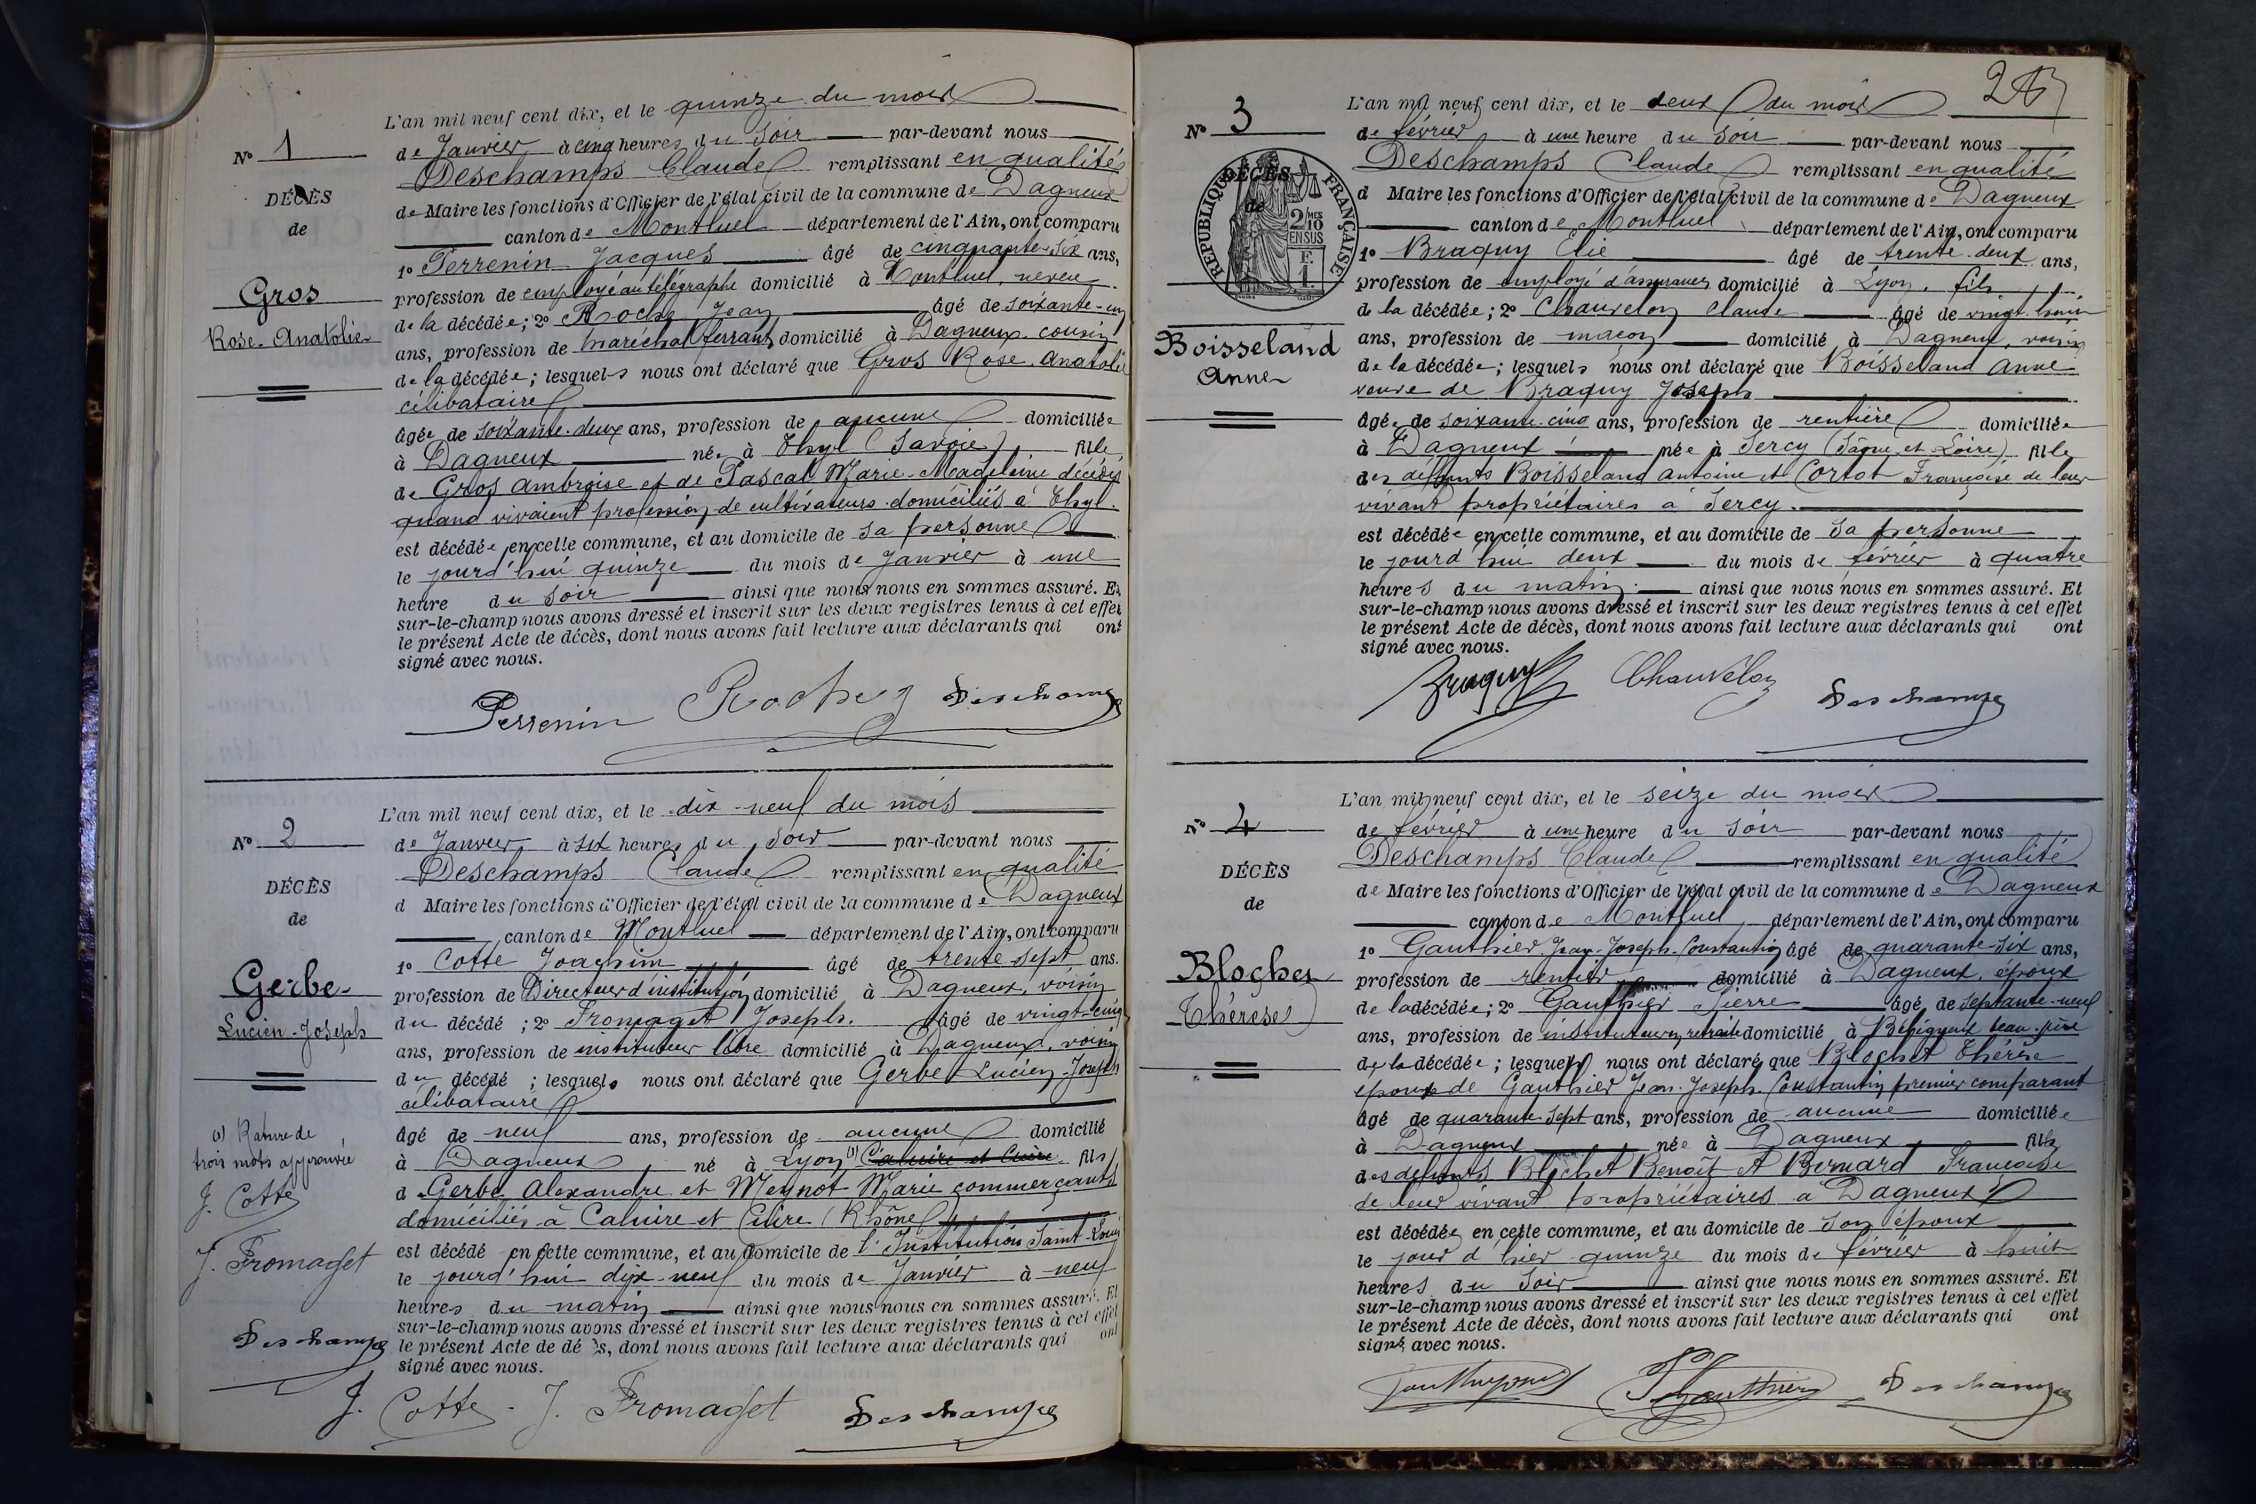 L'an mil neuf cent dix, et le quinze du mois
Nº 1
de Janvier à cinq heures du soir par-devant nous
Deschamps Claude remplissant en qualité
DÉCÈS
de Maire les fonctions d'Officier de l'état civil de la commune de Dagneux
de
canton de Montluel département de l'Ain, ont comparu
1º Perrenin Jacques âgé de cinquante-six ans,
Gros
profession de employé au télégraphe domicilié à Montluel, neveu
Rose-Anatolie
de la décédée; 2º Roche Jean âgé de soixante-un
ans, profession de maréchal ferrant domicilié à Dagneux, cousin
de la décédée; lesquels nous ont déclaré que Gros Rose-Anatolie
célibataire
âgée de soixante-deux ans, profession de aucune domiciliée
à Dagneux née à Thyl (Savoie) fille
de Gros Ambroise et de Pascal Marie-Madeleine décédés
quand vivaient profession de cultivateurs domiciliés à Thyl.
est décédée en cette commune, et au domicile de sa personne
le jourd'hui quinze du mois de Janvier à une
heure du soir ainsi que nous nous en sommes assuré. Et
sur-le-champ nous avons dressé et inscrit sur les deux registres tenus à cet effet
le présent Acte de décès, dont nous avons fait lecture aux déclarants qui ont
signé avec nous.
Perrenin Roche Deschamps
L'an mil neuf cent dix, et le dix-neuf du mois
Nº 2
de Janvier à six heures du soir par-devant nous
Deschamps Claude remplissant en qualité
DÉCÈS
d Maire les fonctions d'Officier de l'état civil de la commune de Dagneux
de
canton de Montluel département de l'Ain, ont comparu
1º Cotte Joachim âgé de trente-sept ans.
Gerbe
profession de Directeur d'institution domicilié à Dagneux, voisin
Lucien-Joseph
du décédé ; 2º Fromaget Joseph. âgé de vingt-cinq
ans, profession de instituteur libre domicilié à Dagneux, voisin
du décédé ; lesquels nous ont déclaré que Gerbe Lucien-Joseph
célibataire
âgé de neuf ans, profession de aucune domicilié
(1) Rature de
trois mots approuvée
à Dagneux né à Lyon (1) Caluire et Cuire fils
J. Cotte
d Gerbe Alexandre et Meynot Marie commerçants
domiciliés à Caluire et Cuire (Rhône)
J. Fromaget
est décédé en cette commune, et au domicile de l'Institution Saint-Louis
le jourd'hui dix-neuf du mois de Janvier à neuf
heures du matin ainsi que nous nous en sommes assuré. Et
Deschamps
sur-le-champ nous avons dressé et inscrit sur les deux registres tenus à cet effet
le présent Acte de dé s, dont nous avons fait lecture aux déclarants qui ont
signé avec nous.
J. Cotte J. Fromaget Deschamps
L'an mil neuf cent dix, et le deux du mois
Nº 3
de février à une heure du soir par-devant nous
Deschamps Claude remplissant en qualité
DÉCÈS
de
RÉPUBLIQUE FRANÇAISE
2/10 MES
EN SUS
F.
1.
d Maire les fonctions d'Officier de l'état civil de la commune de Dagneux
canton de Montluel département de l'Ain, ont comparu
1º Braquy Elie âgé de trente-deux ans,
profession de employé d'assurances domicilié à Lyon, fils
de la décédée; 2º Chauvelon Claude âgé de vingt-huit
Boisseland
Anne
ans, profession de maçon domicilié à Dagneux, voisin
de la décédée; lesquels nous ont déclaré que Boisseland Anne
veuve de Braquy Joseph
âgée de soixante-cinq ans, profession de rentière domiciliée
à Dagneux née à Sercy (Saône-et-Loire) fille
des défunts Boisseland Antoine et Cortot Françoise de leur
vivant propriétaires à Sercy.
est décédée en cette commune, et au domicile de sa personne
le jourd'hui deux du mois de février à quatre
heures du matin ainsi que nous nous en sommes assuré. Et
sur-le-champ nous avons dressé et inscrit sur les deux registres tenus à cet effet
le présent Acte de décès, dont nous avons fait lecture aux déclarants qui ont
signé avec nous.
Braquy Chauvelon Deschamps
L'an mil neuf cent dix, et le seize du mois
Nº 4
de février à une heure du soir par-devant nous
Deschamps Claude remplissant en qualité
DÉCÈS
de Maire les fonctions d'Officier de l'état civil de la commune de Dagneux
de
canton de Montluel département de l'Ain, ont comparu
1º Gauthier Jean-Joseph-Constantin âgé de quarante-six ans,
Blochet
profession de rentier domicilié à Dagneux, époux
Thérèse
de la décédée; 2º Gauthier Pierre âgé de septante-neuf
ans, profession de instituteur en retraite domicilié à Béligneux beau-père
de la décédée; lesquels nous ont déclaré que Blochet Thérèse
épouse de Gauthier Jean-Joseph-Constantin premier comparant
âgé de quarante-sept ans, profession de aucune domiciliée
à Dagneux née à Dagneux fille
des défunts Blochet Benoît et Bernard Françoise
de leur vivant propriétaires à Dagneux
est décédée en cette commune, et au domicile de son époux
le jour d'hier quinze du mois de février à huit
heures du soir ainsi que nous nous en sommes assuré. Et
sur-le-champ nous avons dressé et inscrit sur les deux registres tenus à cet effet
le présent Acte de décès, dont nous avons fait lecture aux déclarants qui ont
signé avec nous.
Gauthier Deschamps